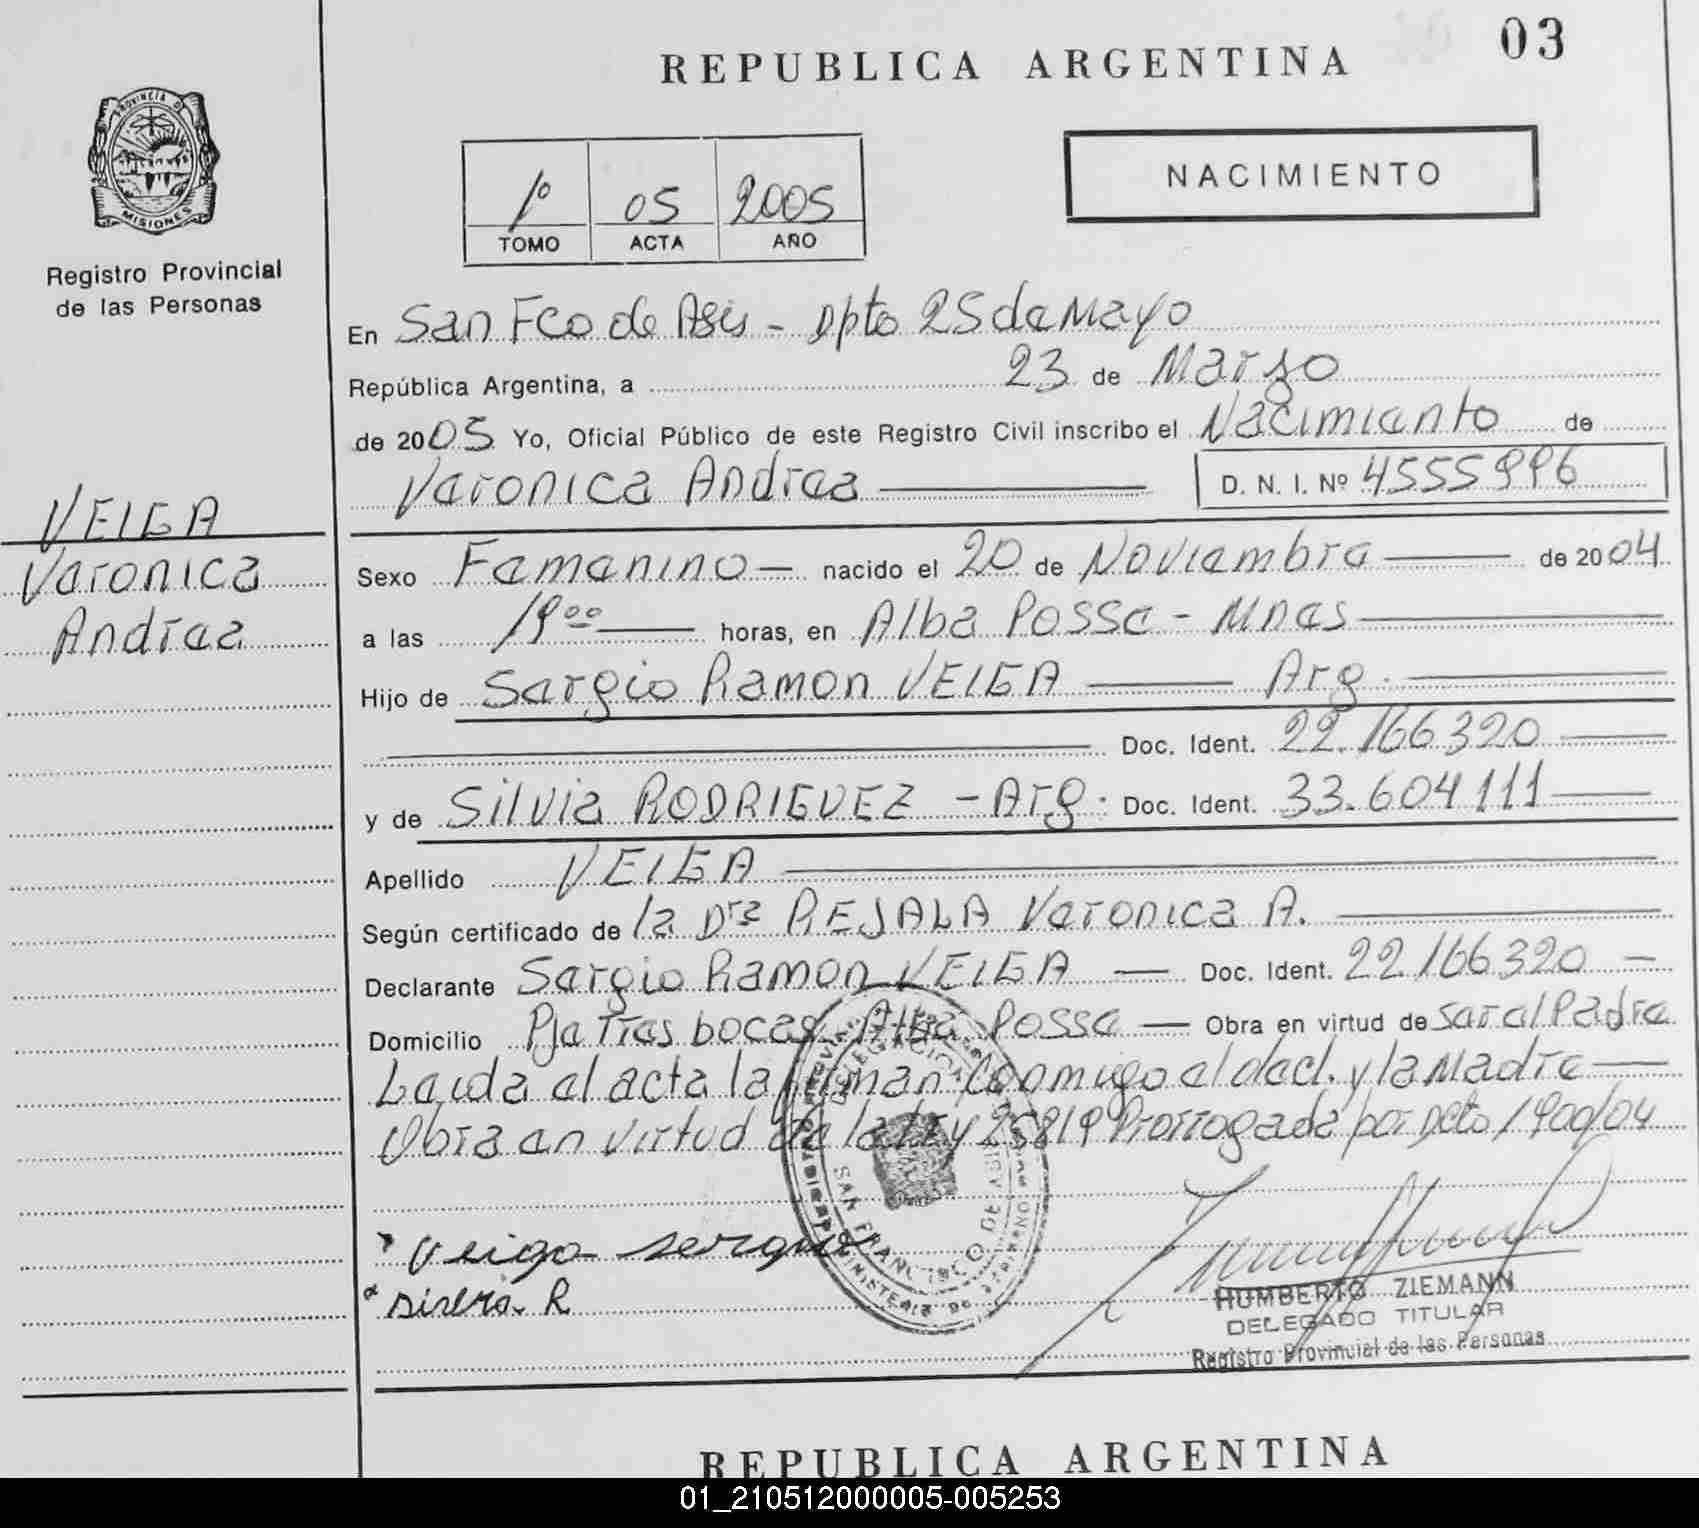 REPUBLICA ARGENTINA
03
PROVINCIA DE
MISIONES
Registro Provincial
de las Personas
1º 05 2005
TOMO ACTA AÑO
NACIMIENTO
En San Fco de Asis - Dpto 25 de Mayo
República Argentina, a 23 de Marzo
de 2005 Yo, Oficial Público de este Registro Civil inscribo el Nacimiento de
Veronica Andrea
D. N. I. Nº 4555996
VEIGA
Veronica
Andrea
Sexo Femenino — nacido el 20 de Noviembre de 2004
a las 19⁰⁰ horas, en Alba Posse - Mnes
Hijo de Sergio Ramon VEIGA Arg.
Doc. Ident. 22.166320
y de Silvia RODRIGUEZ - Arg. Doc. Ident. 33.604111
Apellido VEIGA
Según certificado de la Dra REJALA Veronica A.
Declarante Sergio Ramon VEIGA — Doc. Ident. 22166320 —
Domicilio Pje Tres bocas Alba Posse — Obra en virtud de ser el Padre
Leida el acta la firman conmigo el decl. y la Madre
Obra en virtud de la Ley 25819 Prorrogada por Dcto 1900/04
Veiga sergio
silvia R
DELEGACION
SAN FRANCISCO DE ASIS
MINISTERIO DE GOBIERNO
HUMBERTO ZIEMANN
DELEGADO TITULAR
Registro Provincial de las Personas
REPUBLICA ARGENTINA
01_210512000005-005253